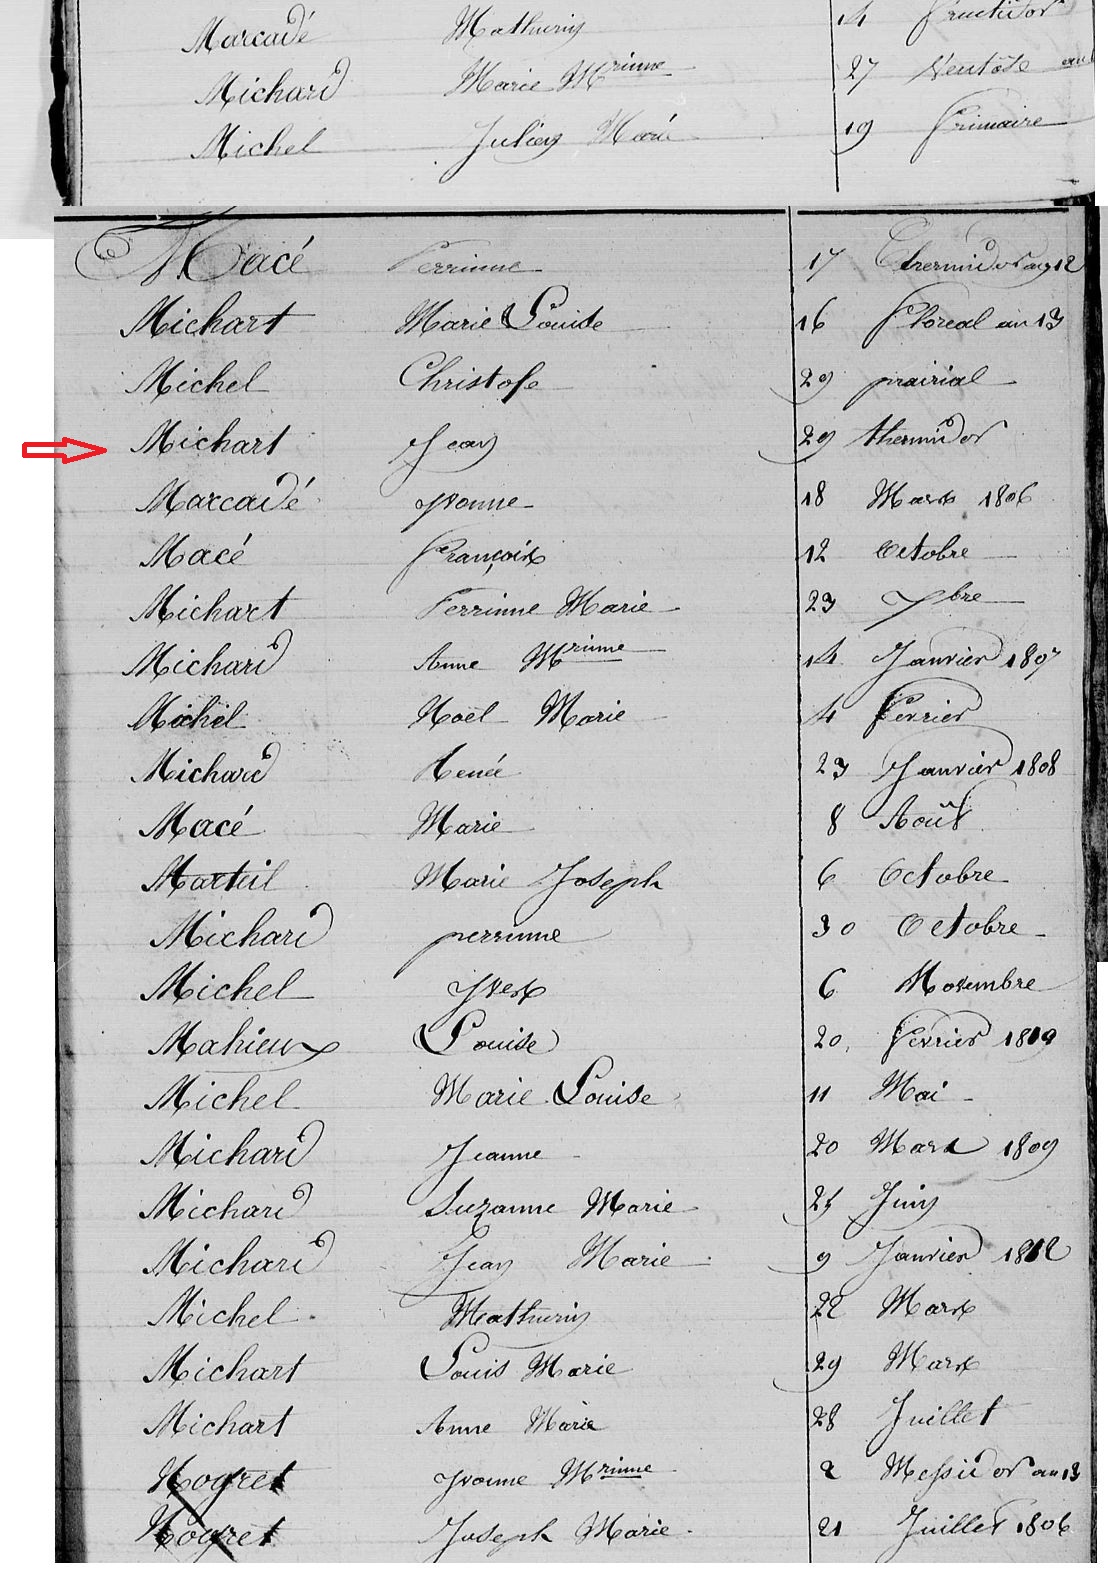 Marcadé Mathurin 14 fructidor
Michard Marie Mrinne 27 Ventôse an
Michel Julien Marie 19 frimaire
Macé Perrinne 17 thermidor an 12
Michart Marie Louise 16 floreal an 13
Michel Christofe 29 prairial
Michart Jean 29 thermidor
Marcadé yvonne 18 Mars 1806
Macé françois 12 octobre
Michart Perrinne Marie 23 7bre
Michard Anne Mrinne 14 Janvier 1807
Michel Noël Marie 4 fevrier
Michard Renée 23 Janvier 1808
Macé Marie 8 Août
Marteil Marie Joseph 6 Octobre
Michard perrinne 30 Octobre
Michel yves 6 Novembre
Mahieux Louise 20 fevrier 1809
Michel Marie Louise 11 Mai
Michard Jeanne 20 Mars 1809
Michard Suzanne Marie 25 Juin
Michard Jean Marie 9 Janvier 1812
Michel Mathurin 22 Mars
Michart Louis Marie 29 Mars
Michart Anne Marie 28 Juillet
Nogret yvonne Mrinne 2 Messidor an 13
Nogret Joseph Marie 21 Juillet 1806